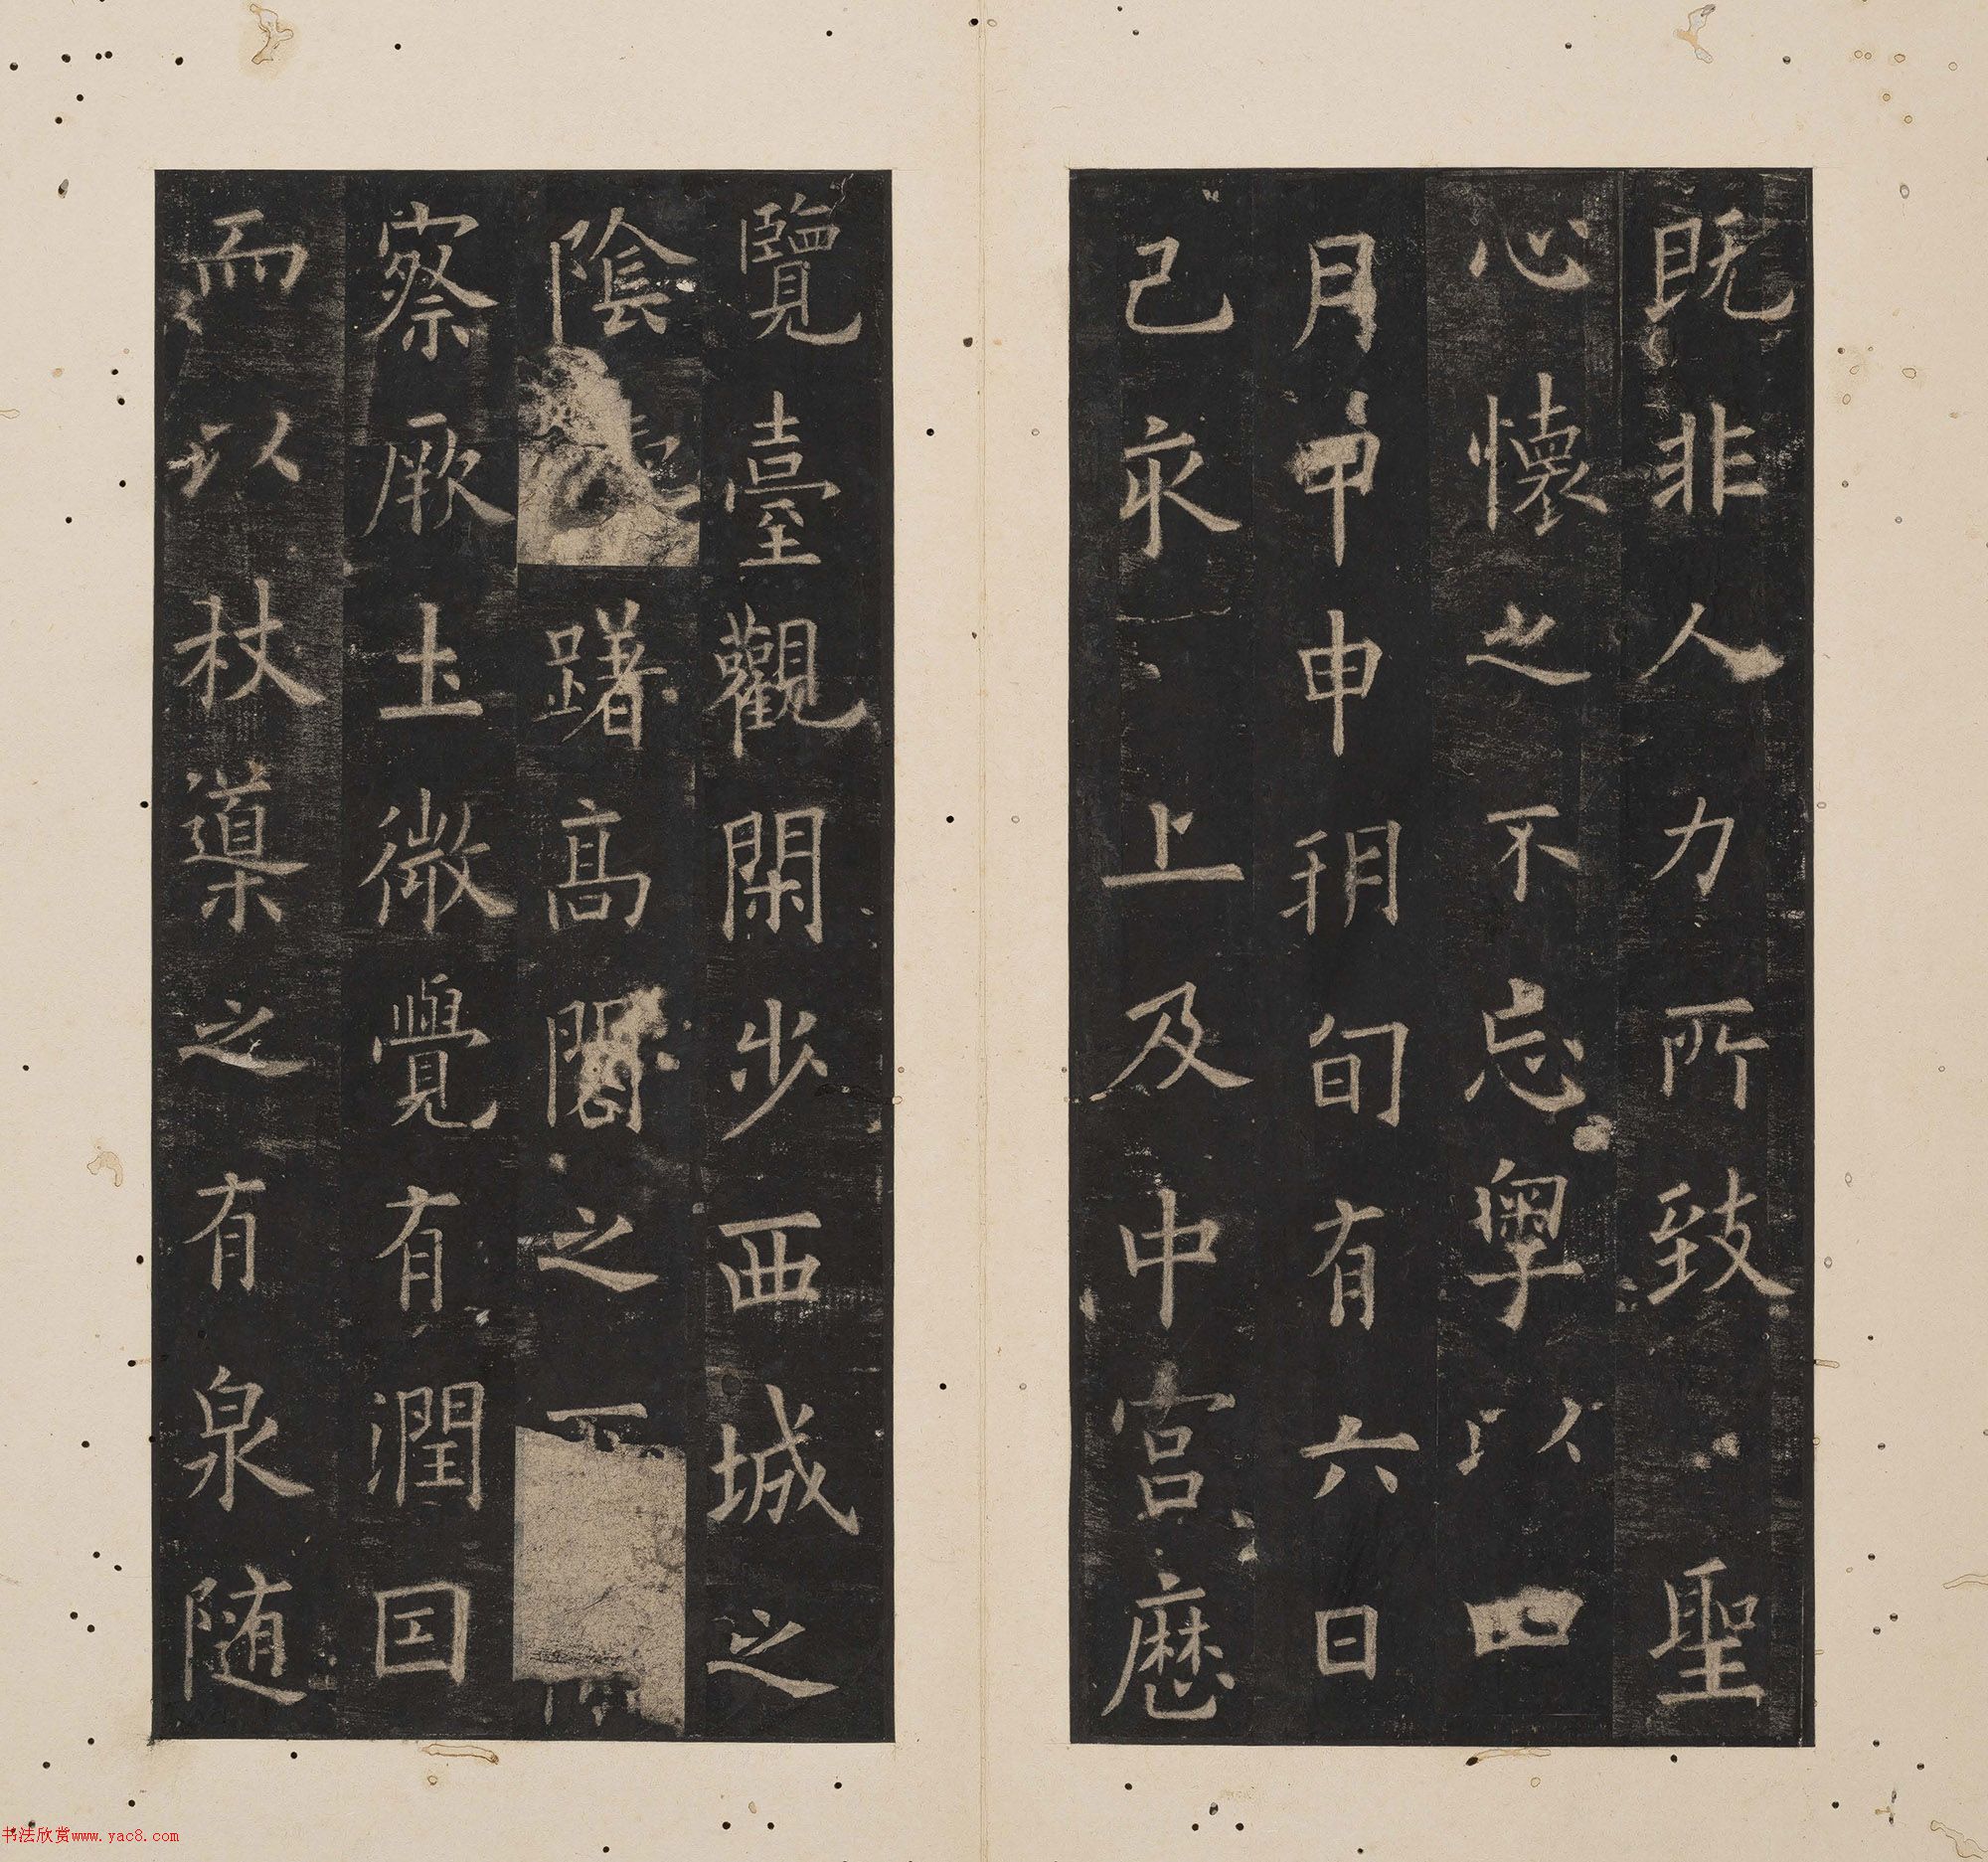 既非人力所致聖
心懷之不忘粤以四
月甲申朔旬有六日
己亥上及中宮歷
覽臺觀閑步西城之
陰躇高閣之下
察厥土微覺有潤因
而以杖導之有泉随
书法欣赏www.yac8.com